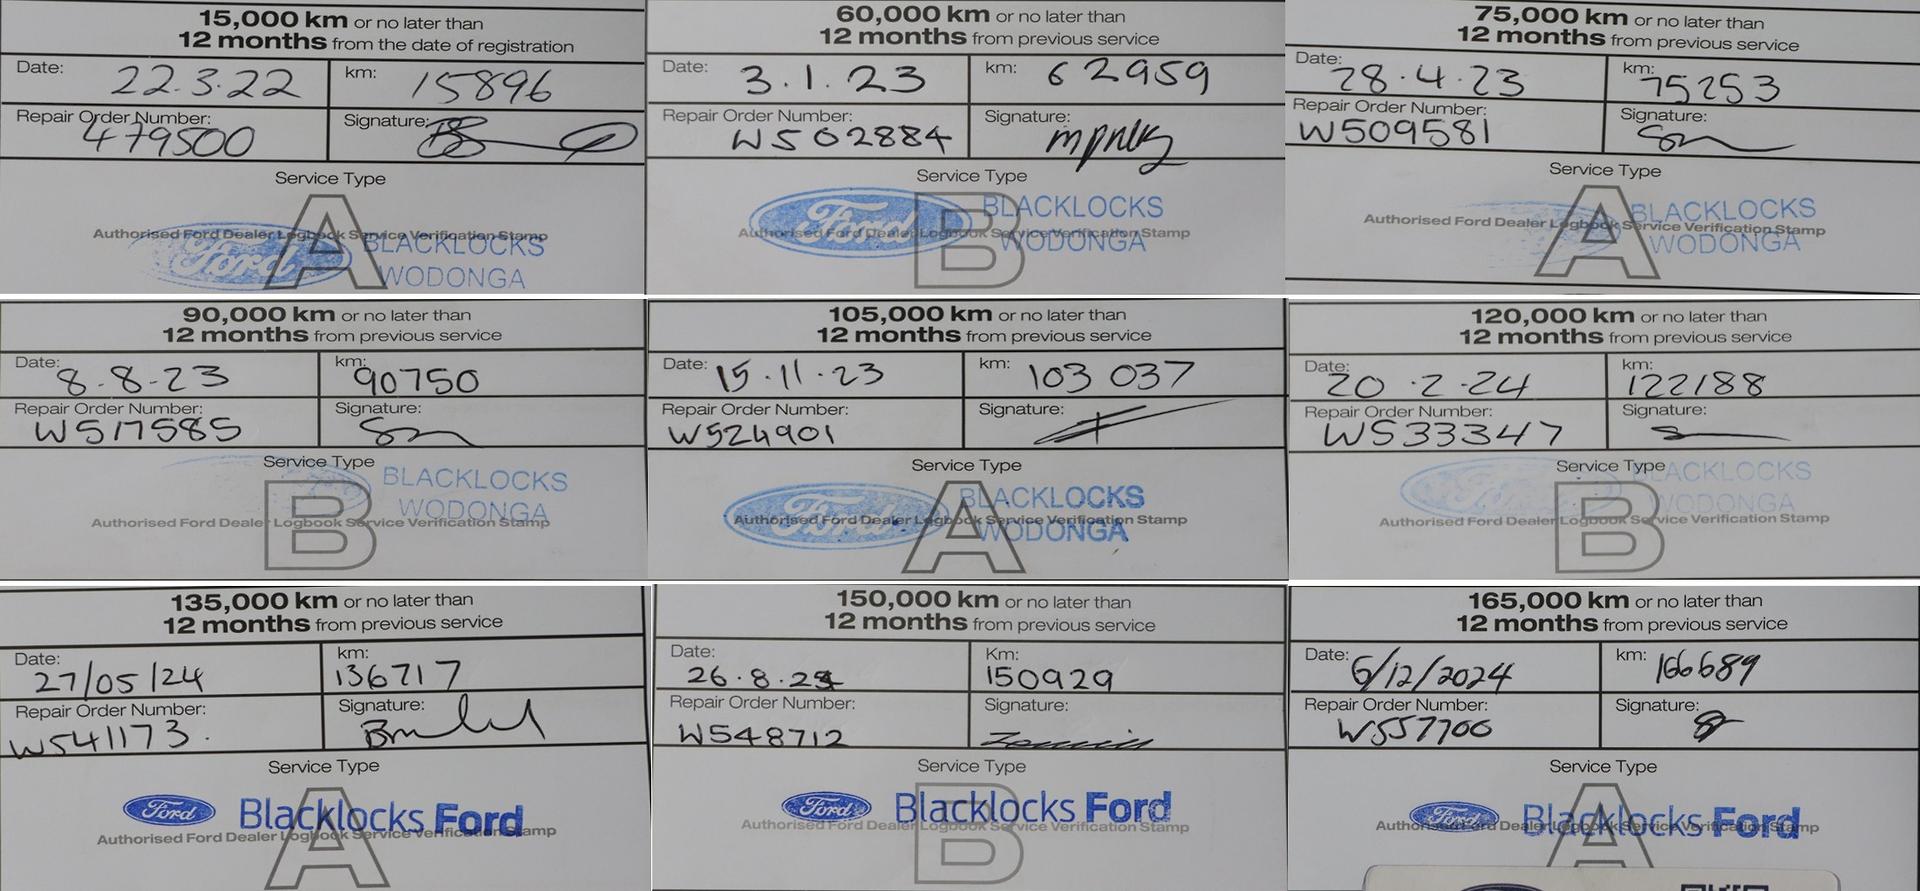 15,000 km or no later than
12 months from the date of registration
Date: 22.3.22 km: 15896
Repair Order Number: 479500 Signature:
Service Type
A
Authorised Ford Dealer Logbook Service Verification Stamp
Ford BLACKLOCKS
WODONGA
60,000 km or no later than
12 months from previous service
Date: 3.1.23 km: 62959
Repair Order Number: W502884 Signature:
Service Type
B
Ford BLACKLOCKS
Authorised Ford Dealer Logbook Service Verification Stamp
WODONGA
75,000 km or no later than
12 months from previous service
Date: 28.4.23 km: 75253
Repair Order Number: W509581 Signature:
Service Type
A
BLACKLOCKS
Authorised Ford Dealer Logbook Service Verification Stamp
WODONGA
90,000 km or no later than
12 months from previous service
Date: 8-8-23 km: 90750
Repair Order Number: W517585 Signature:
Service Type
B
BLACKLOCKS
WODONGA
Authorised Ford Dealer Logbook Service Verification Stamp
105,000 km or no later than
12 months from previous service
Date: 15.11.23 km: 103 037
Repair Order Number: W524901 Signature:
Service Type
A
BLACKLOCKS
Authorised Ford Dealer Logbook Service Verification Stamp
Ford WODONGA
120,000 km or no later than
12 months from previous service
Date: 20.2.24 km: 122188
Repair Order Number: W533347 Signature:
Service Type
B
Ford BLACKLOCKS
WODONGA
Authorised Ford Dealer Logbook Service Verification Stamp
135,000 km or no later than
12 months from previous service
Date: 27/05/24 km: 136717
Repair Order Number: W541173. Signature:
Service Type
A
Ford Blacklocks Ford
Authorised Ford Dealer Logbook Service Verification Stamp
150,000 km or no later than
12 months from previous service
Date: 26.8.24 Km: 150929
Repair Order Number: W548712 Signature:
Service Type
B
Ford Blacklocks Ford
Authorised Ford Dealer Logbook Service Verification Stamp
165,000 km or no later than
12 months from previous service
Date: 6/12/2024 km: 166689
Repair Order Number: W557700 Signature:
Service Type
A
Ford Blacklocks Ford
Authorised Ford Dealer Logbook Service Verification Stamp